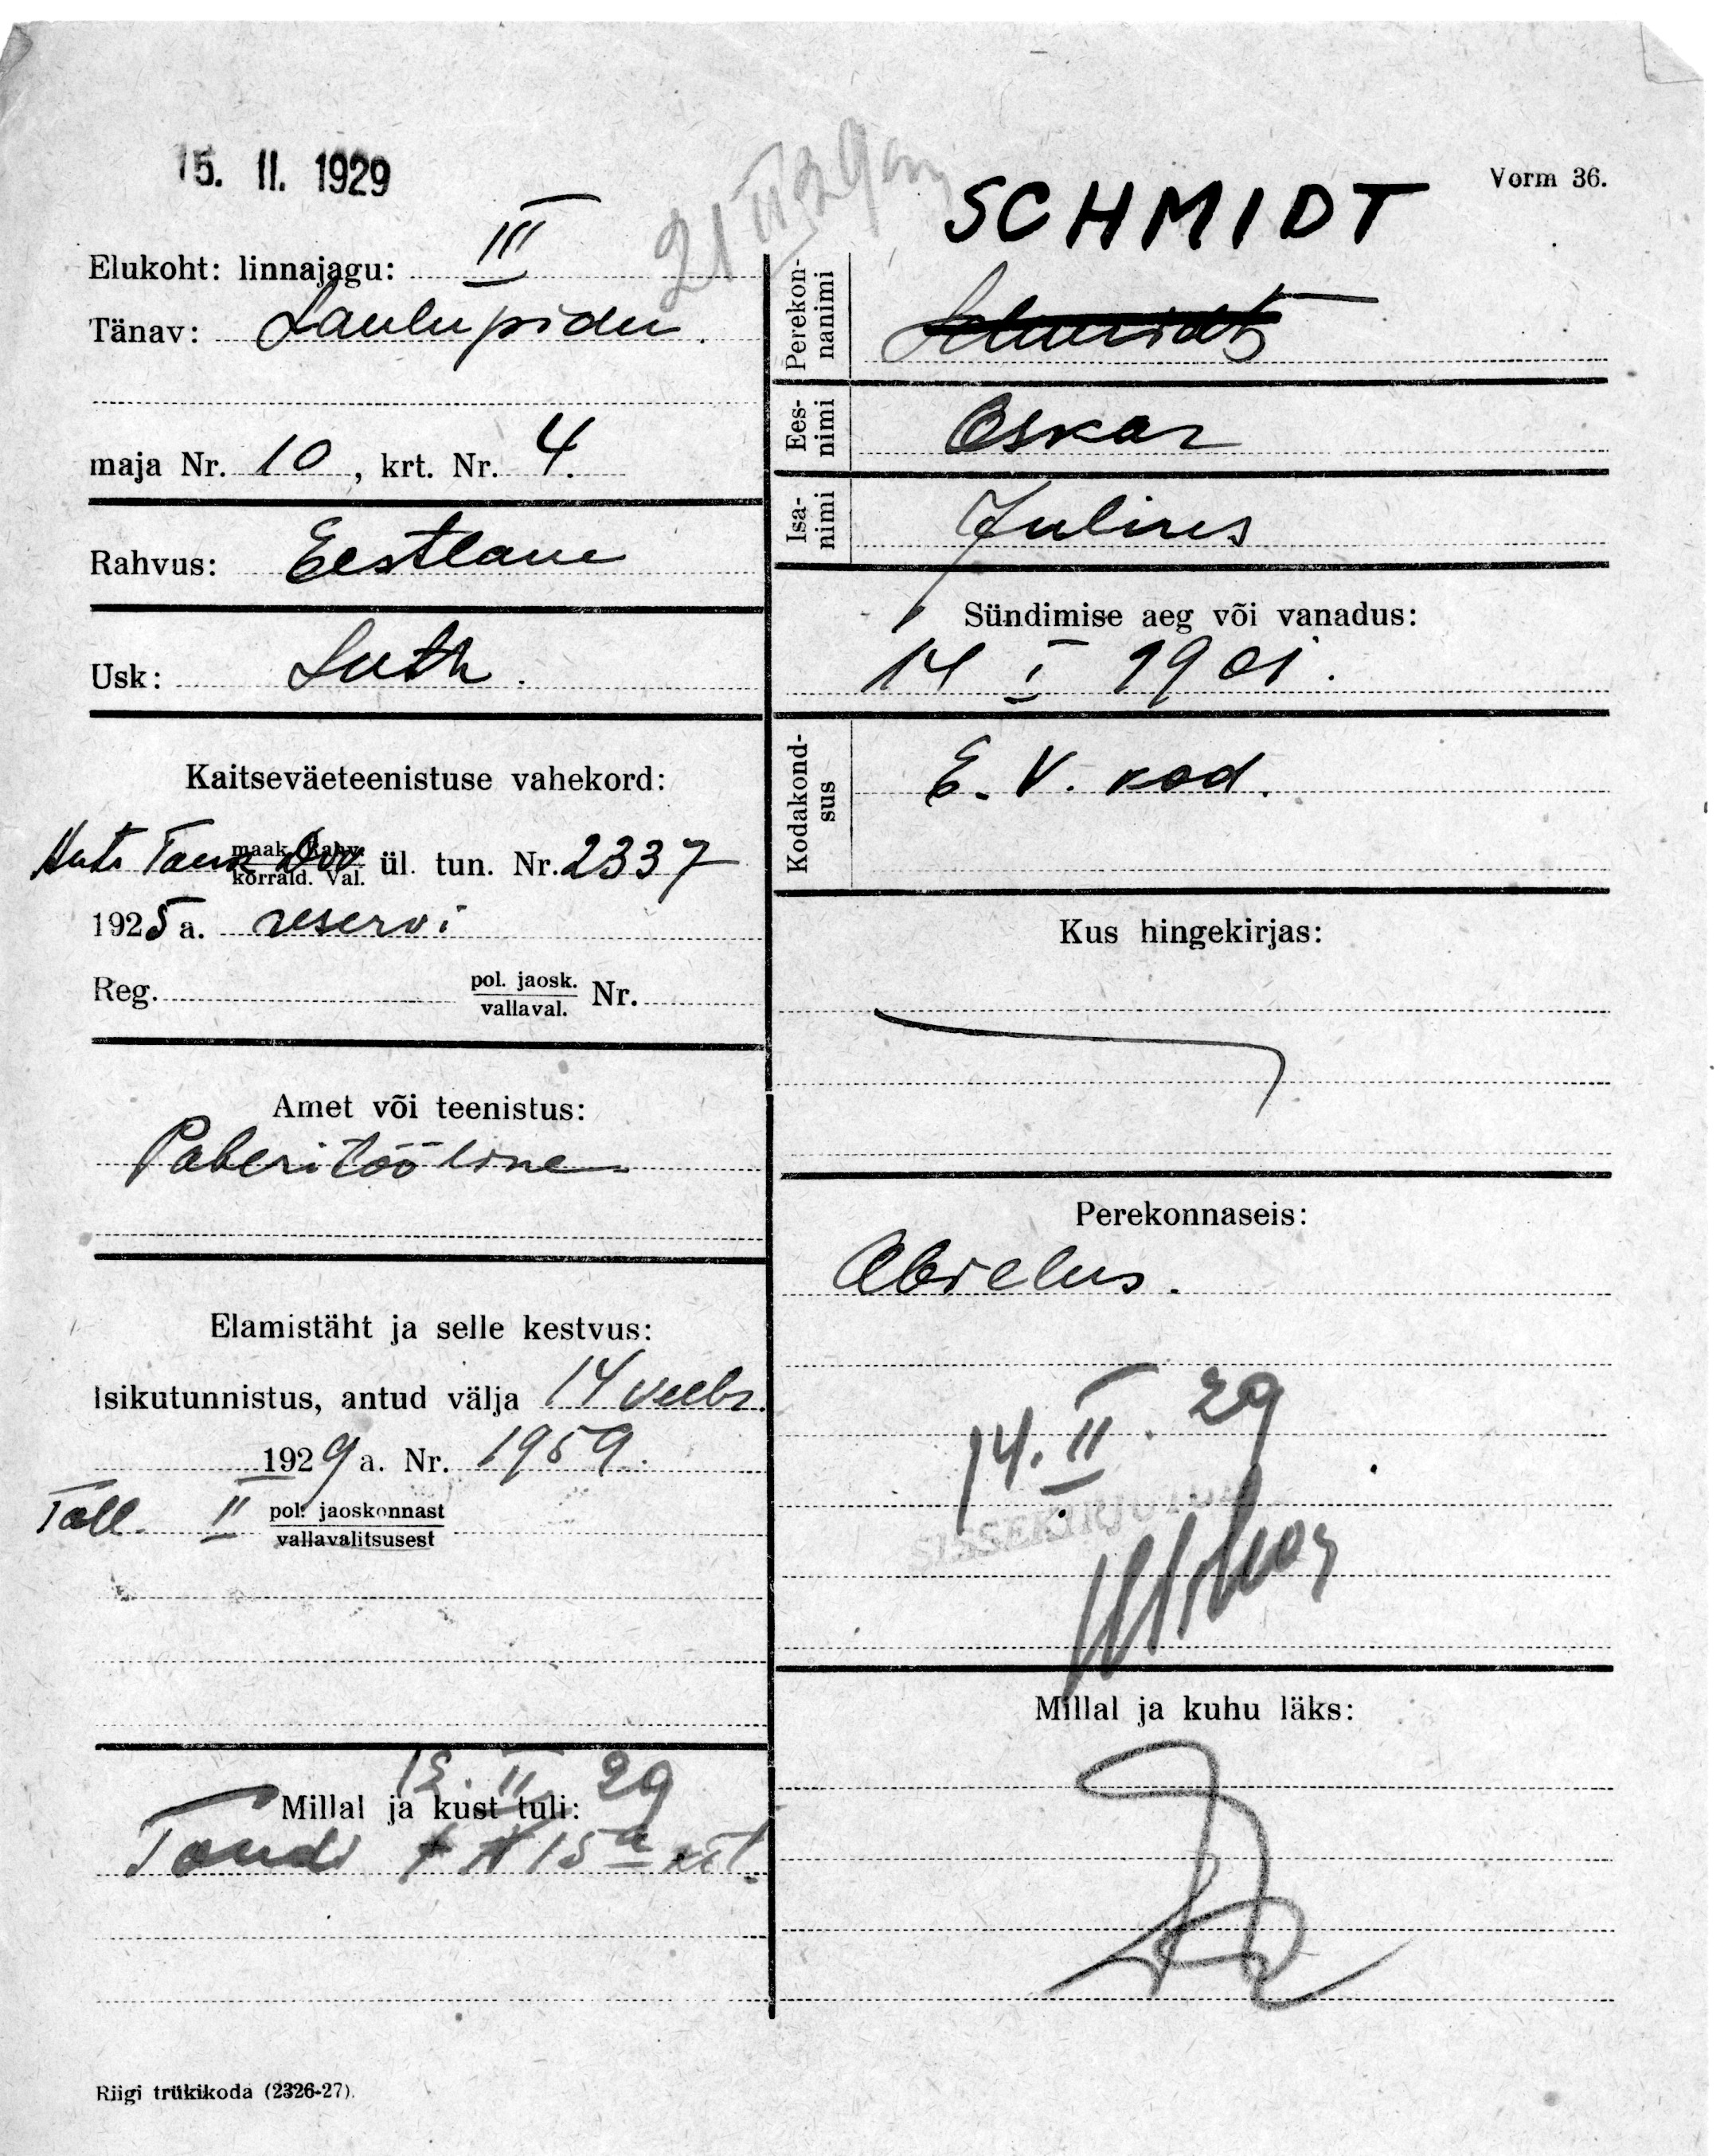 15. II. 1929
Vorm 36.
SCHMIDT
Elukoht: linnajagu: III
Tänav: Laulupidu.
maja Nr. 10, krt. Nr. 4.
Rahvus: Eestlane
Usk: Luth.
Kaitseväeteenistuse vahekord:
Auto Tank Div. ül. tun. Nr. 2337
maak. Rahv.
korrald. Val.
1925 a. reservi
Reg. pol. jaosk. Nr.
vallaval.
Amet või teenistus:
Paberitööline
Elamistäht ja selle kestvus:
Isikutunnistus, antud välja 14 veebr.
1929 a. Nr. 1959.
Tall. II pol. jaoskonnast
vallavalitsusest
12. II 29
Millal ja kust tuli:
Tondi 15a
Riigi trükikoda (2326-27).
Perekon-
nanimi
Schmidt
Ees-
nimi Oskar
Isa-
nimi Julius
Sündimise aeg või vanadus:
14 I 1901.
Kodakond-
sus E. V. kod.
Kus hingekirjas:
Perekonnaseis:
Abielus.
14. II. 29
SISSEKIRJUTUD
Millal ja kuhu läks: